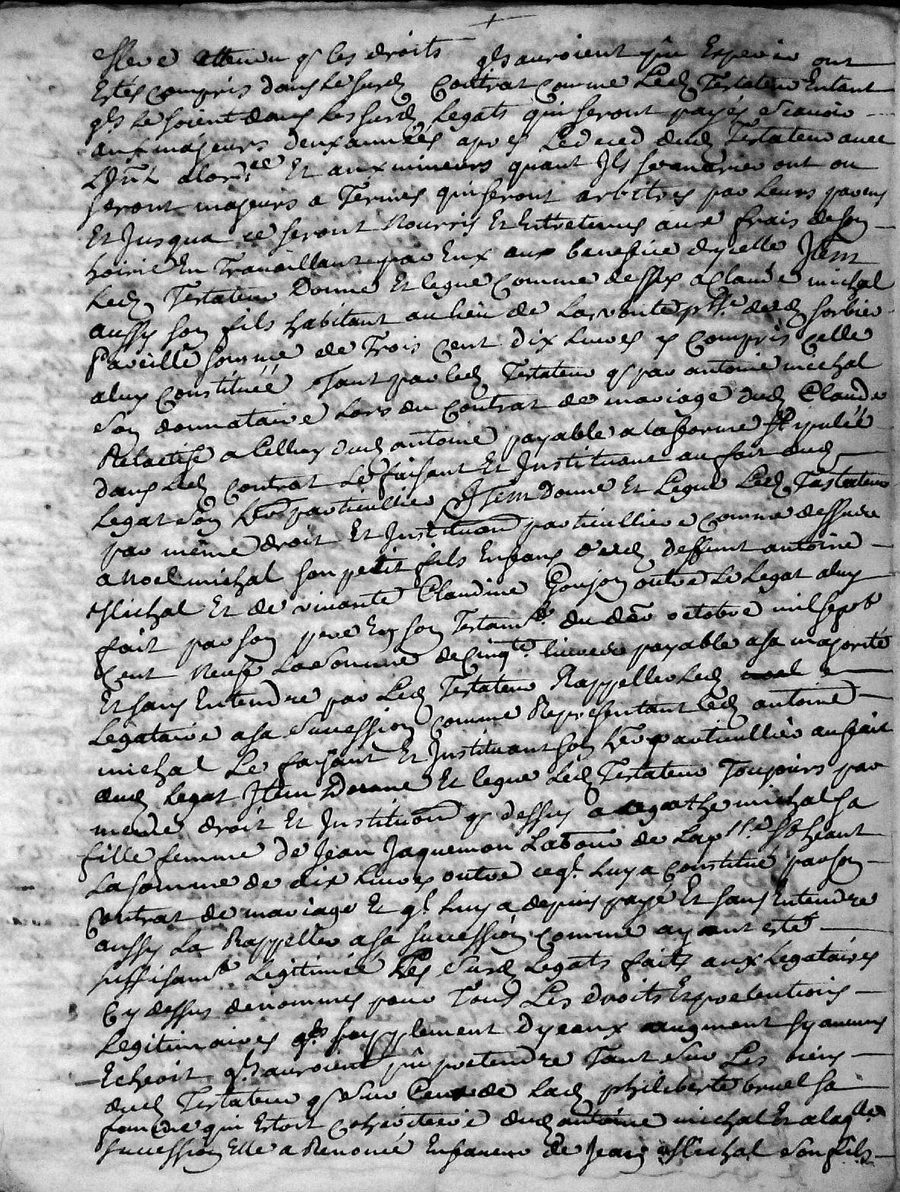 attendu q les droits qls auroient pû Esperer ont
Estés compris dans le susd Contrat comme Led Testateur Entant
qls le soient dans les susd Legats qui seront payés scavoir
aux majeurs deux années apres Le deced dud Testateur avec
Et aux mineurs quant Ils se marieront ou
seront majeurs a Termes qui seront arbitres par Leurs parens
Et Jusqua ce seront Nourris Et Entretenus aux frais de son
hoirie En Travaillant par Eux aux benefice dycelle Item
Led Testateur Donne Et legue comme dessus a Claude michal
aussy son fils habitant au lieu de Lavoute de sorbier
Pareille somme de Trois Cent dix Livres y Compris Celle
a luy Constituée Tant par led Testateur q par antoine michal
son donnataire Lors du Contrat de mariage dud Claude
Relactif a Celluy dud antoine payable a la forme stipulée
dans Led Contrat Le faisant Et Instituant au fait dud
Legat son her particullier Item Donne Et Legue Led Testateur
par même droit Et Institution particulliere comme dessus
a Noel michal son petit fils Enfans dud deffunt antoine
Michal Et de vivante Claudine Goujon outre Le Legat a luy
fait par son pere En son Testamt du octobre mil sept
Cent Neuf La somme de Cinqte livres payable a sa majorité
Et sans Entendre par Led Testateur Rappeller Led noel
Legataire a sa succession comme Representant led antoine
michal Le faisant Et Instituant son her particullier au fait
dud Legat Item Donne Et legue Led Testateur Toujours par
meme droit Et Institution q dessus a agathe michal sa
fille femme de Jean Jaquemon Latour de Lap
La somme de dix Livres outre ce q Luy a Constitué par son
Contrat de mariage Et q Luy a depuis payé Et sans Entendre
aussy La Rappeller a sa succession comme ayant esté
suffisamt Legitimée Les susd Legats faits aux Legataires
Cy dessus denommés pour Tous Les droits Et pretentions
Legitimaires qls supplement dyceux augment sy aucuns
Echeoit qls auroient pû pretendre Tant sur Les biens
dud Testateur q sur Ceux de Lad philiberte bruel sa
femme qui Estoit Coheritiere dud antoine michal Et a laqle
succession Elle a Renoncé En faveur de Jean Michal son fils